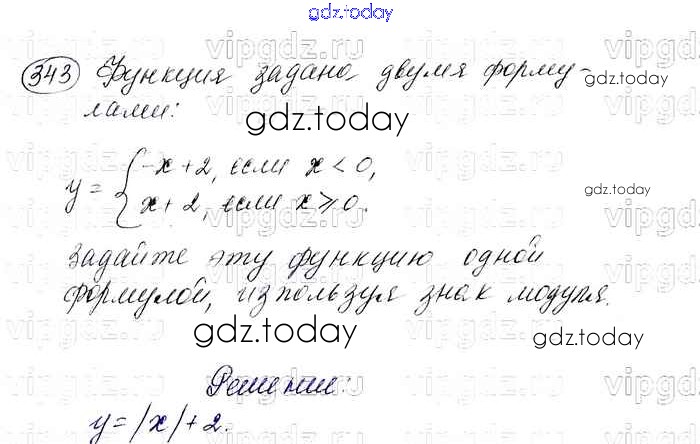 gdz.today
343 Функция задана двумя форму-
лами:
y = { -x + 2, если x < 0,
x + 2, если x ⩾ 0.
задайте эту функцию одной
формулой, используя знак модуля.
Решение:
y = |x| + 2.
gdz.today
gdz.today
gdz.today
gdz.today
gdz.today
vipgdz.ru